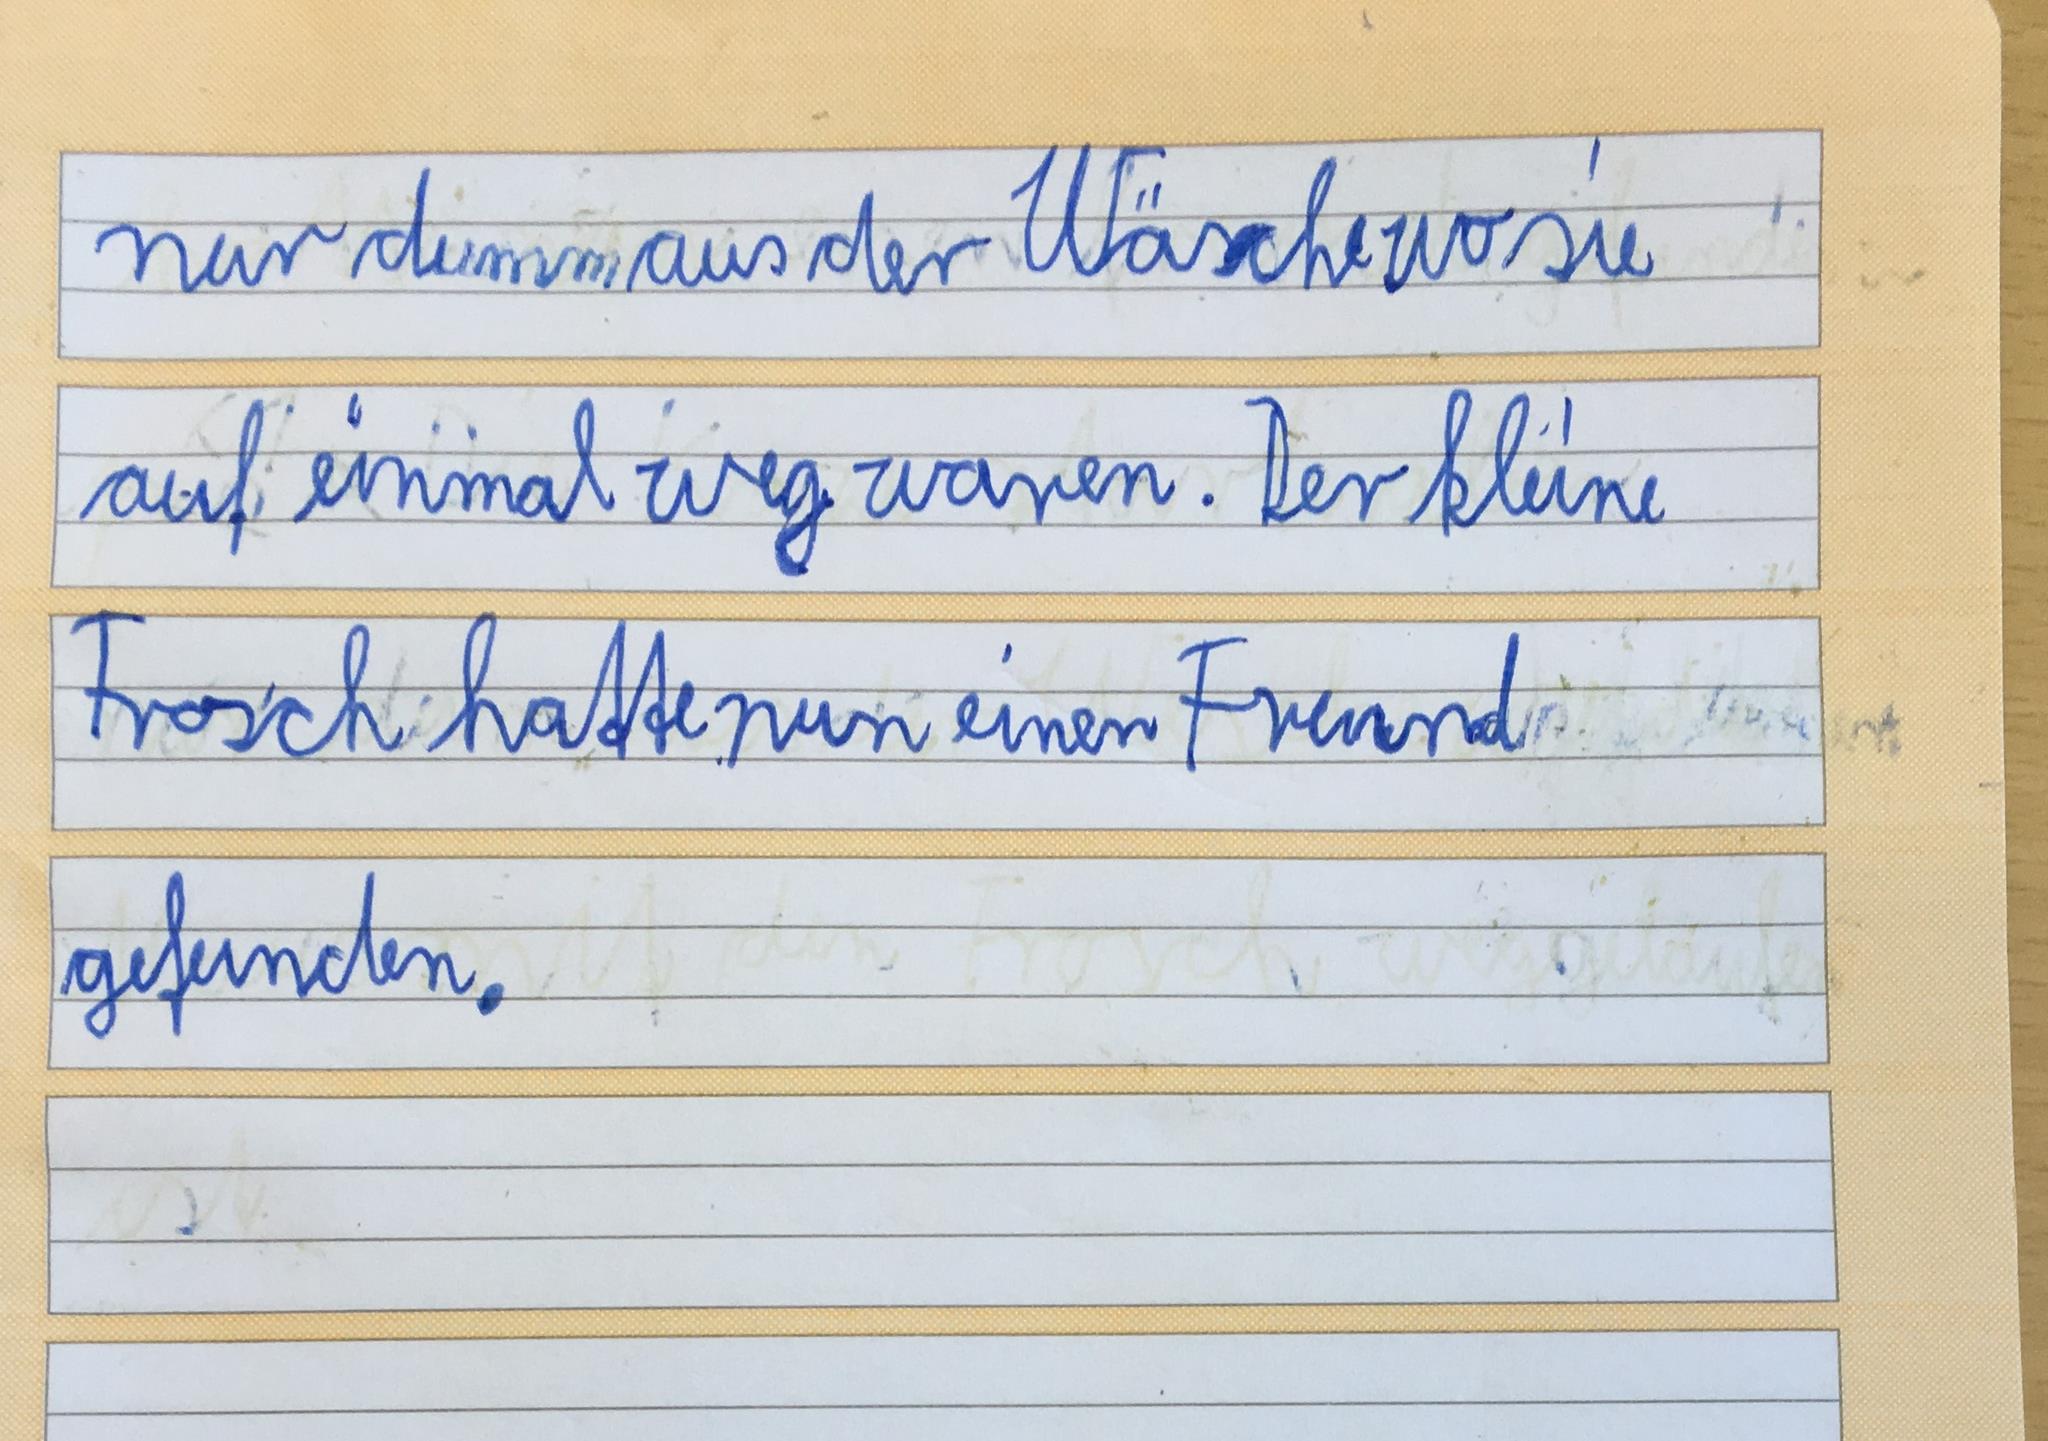 nur dumm aus der Wäsche wo sie
auf einmal weg waren. Der kleine
Frosch hatte nun einen Freund
gefunden.